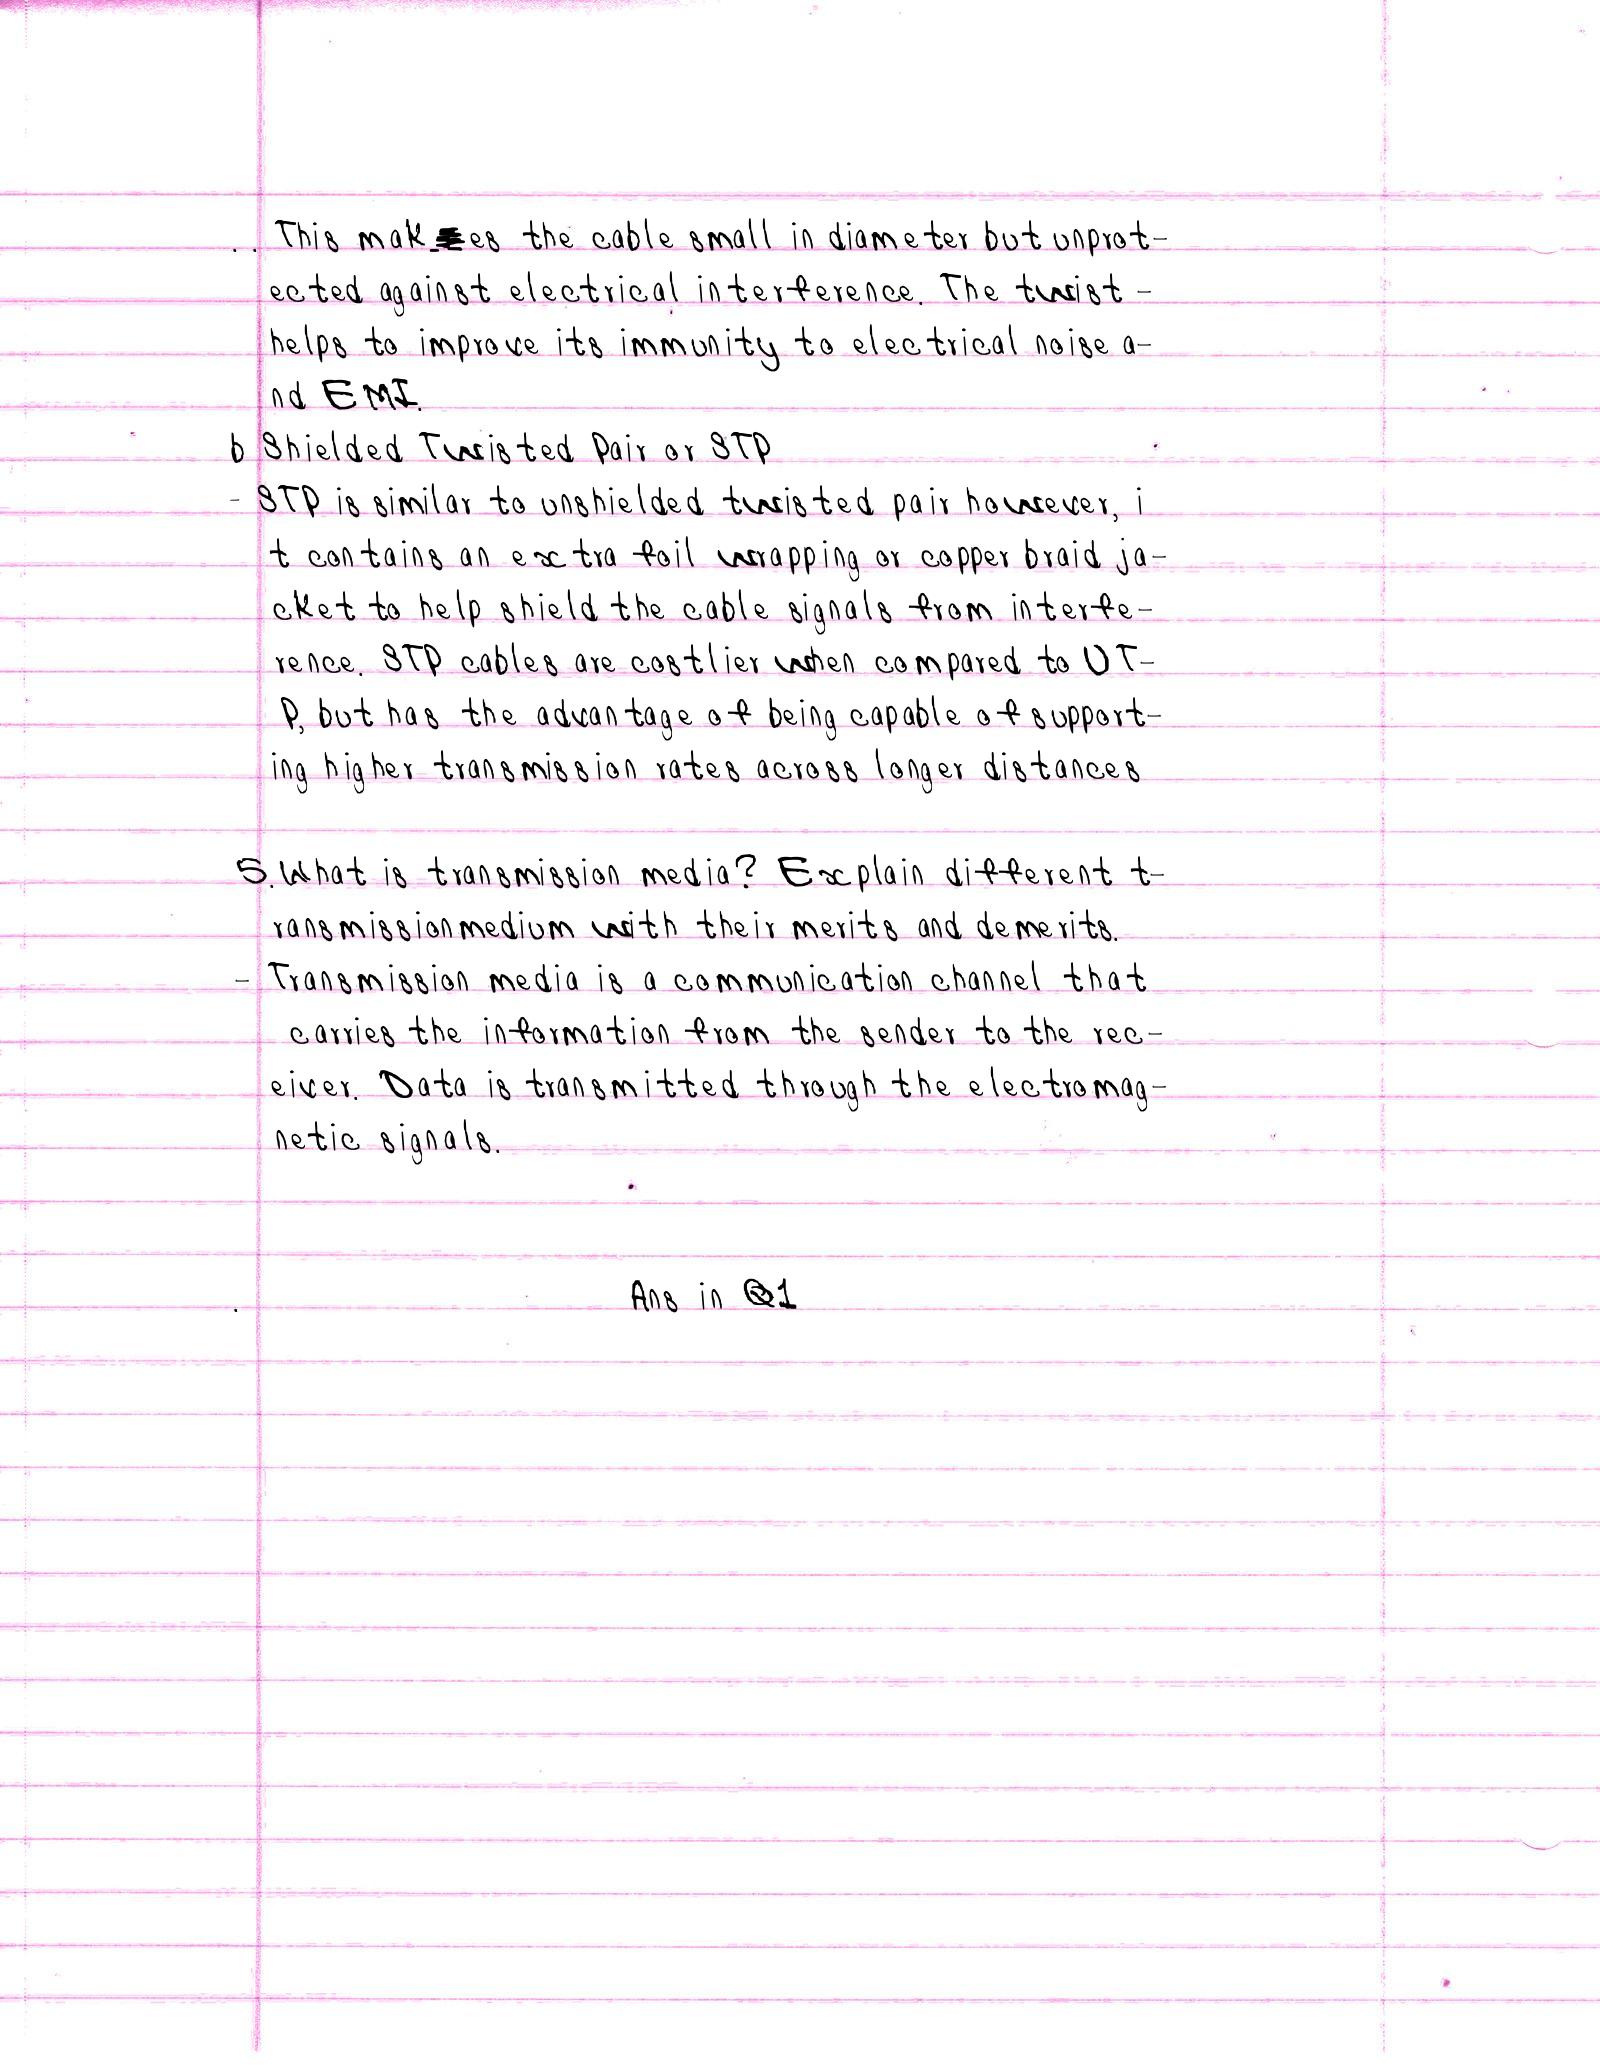 This makes the cable small in diameter but unprot-
ected against electrical interference. The twist-
helps to improve its immunity to electrical noise a-
nd EMI.
b Shielded Twisted Pair or STP
- STP is similar to unshielded twisted pair however, i
t contains an extra foil wrapping or copper braid ja-
cket to help shield the cable signals from interfe-
rence. STP cables are costlier when compared to UT-
P, but has the advantage of being capable of support-
ing higher transmission rates across longer distances
5. What is transmission media? Explain different t-
ransmission medium with their merits and demerits.
- Transmission media is a communication channel that
carries the information from the sender to the rec-
eiver. Data is transmitted through the electromag-
netic signals.
Ans in Q1